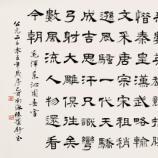 秦皇漢武略輸
文采唐宗宋祖稍遜
風騷一代天驕
成吉思汗只識彎
弓射大雕俱往矣
數風流人物還看
今朝
毛澤東沁園春雪